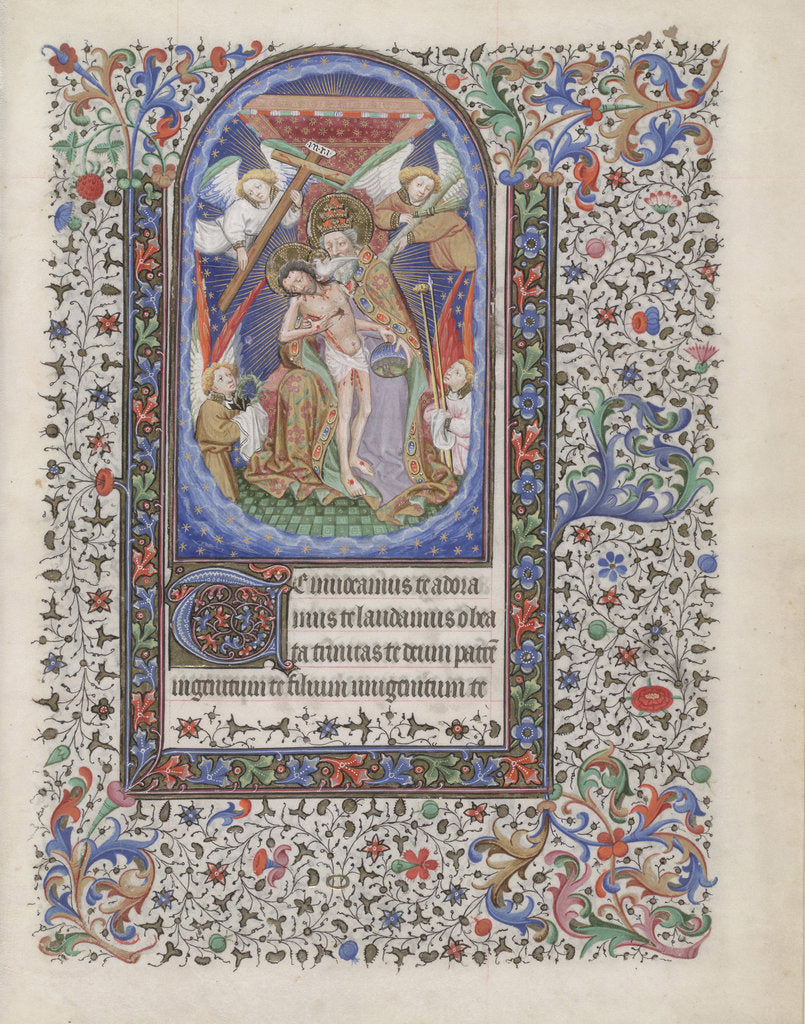 INRI
Te invocamus te adora
mus te laudamus o bea
ta trinitas te deum patrē
ingenitum te filium unigenitum te